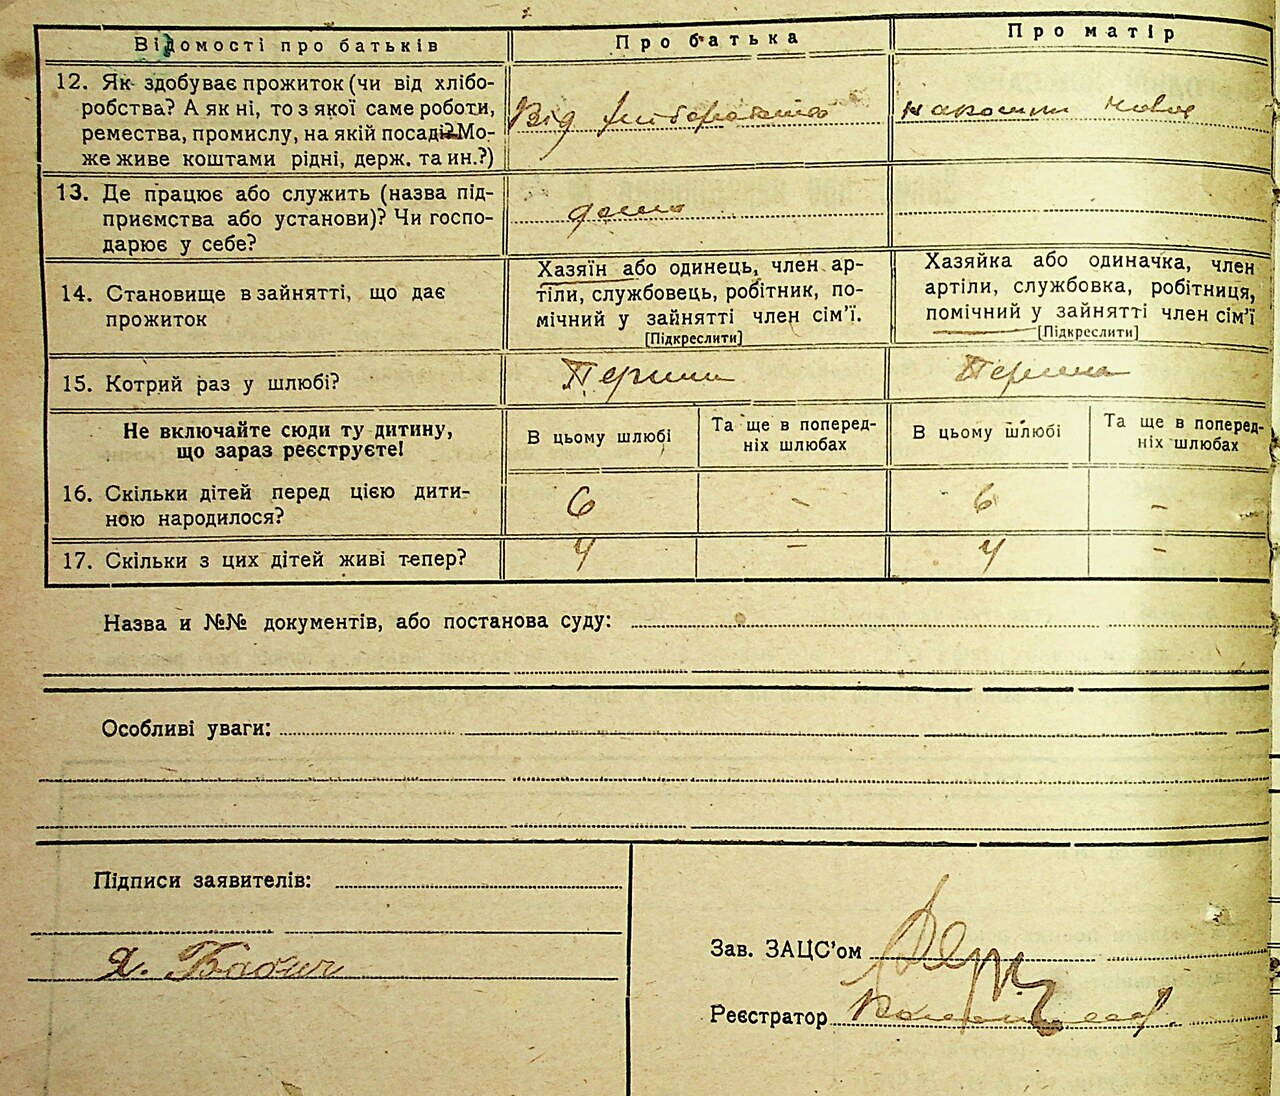 Відомості про батьків
Про батька
Про матір
12. Як здобуває прожиток (чи від хлібо-
робства? А як ні, то з якої саме роботи,
ремества, промислу, на якій посаді? Мо-
же живе коштами рідні, держ. та ин.?)
Від хліборобства
13. Де працює або служить (назва під-
приємства або установи)? Чи госпо-
дарює у себе?
дома
14. Становище в зайнятті, що дає
прожиток
Хазяїн або одинець, член ар-
тіли, службовець, робітник, по-
мічний у зайнятті член сім'ї.
[Підкреслити]
Хазяйка або одиначка, член
артіли, службовка, робітниця,
помічний у зайнятті член сім'ї
[Підкреслити]
15. Котрий раз у шлюбі?
Перший
Перша
Не включайте сюди ту дитину,
що зараз реєструєте!
В цьому шлюбі
Та ще в поперед-
ніх шлюбах
В цьому шлюбі
Та ще в поперед-
ніх шлюбах
16. Скільки дітей перед цією дити-
ною народилося?
6
-
6
-
17. Скільки з цих дітей живі тепер?
4
-
4
-
Назва и №№ документів, або постанова суду:
Особливі уваги:
Підписи заявителів:
Я. Бабич
Зав. ЗАЦС'ом
Реєстратор